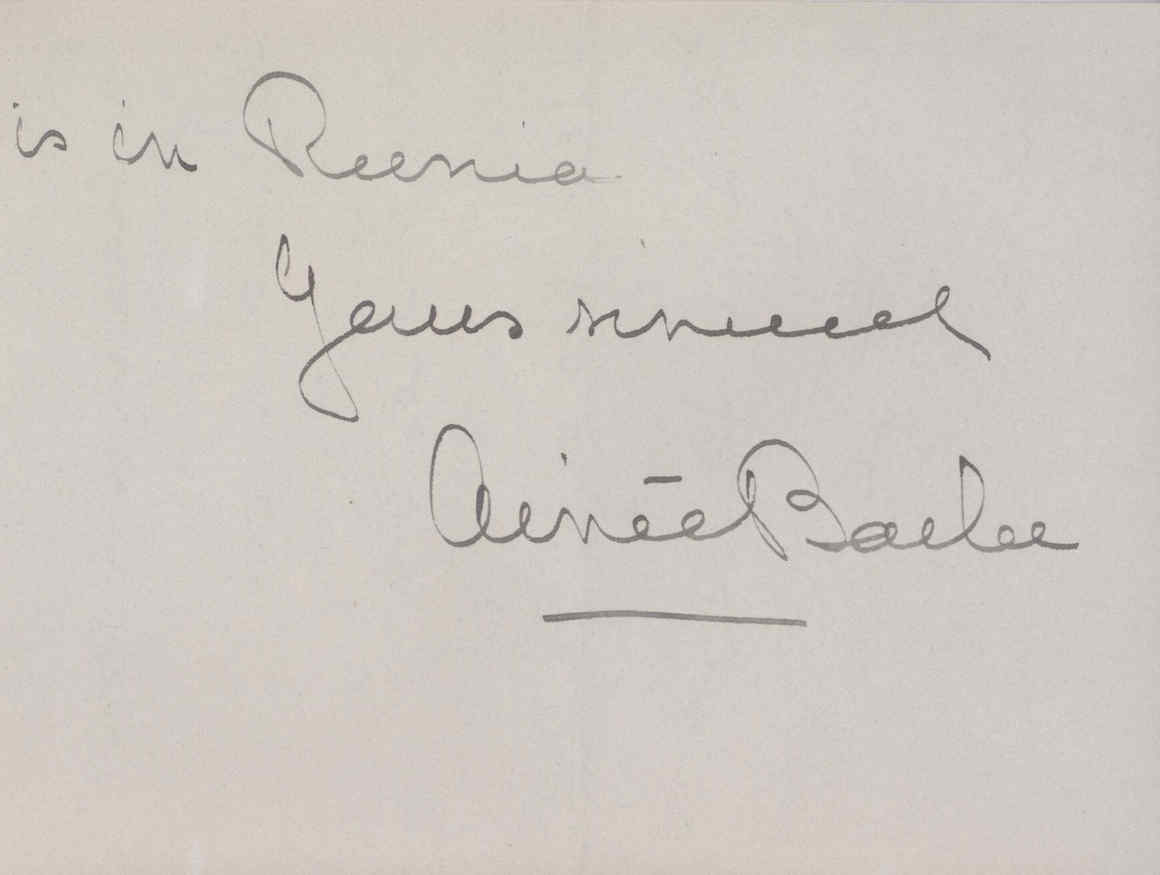 is in Russia
Yours sincerely
Aimée